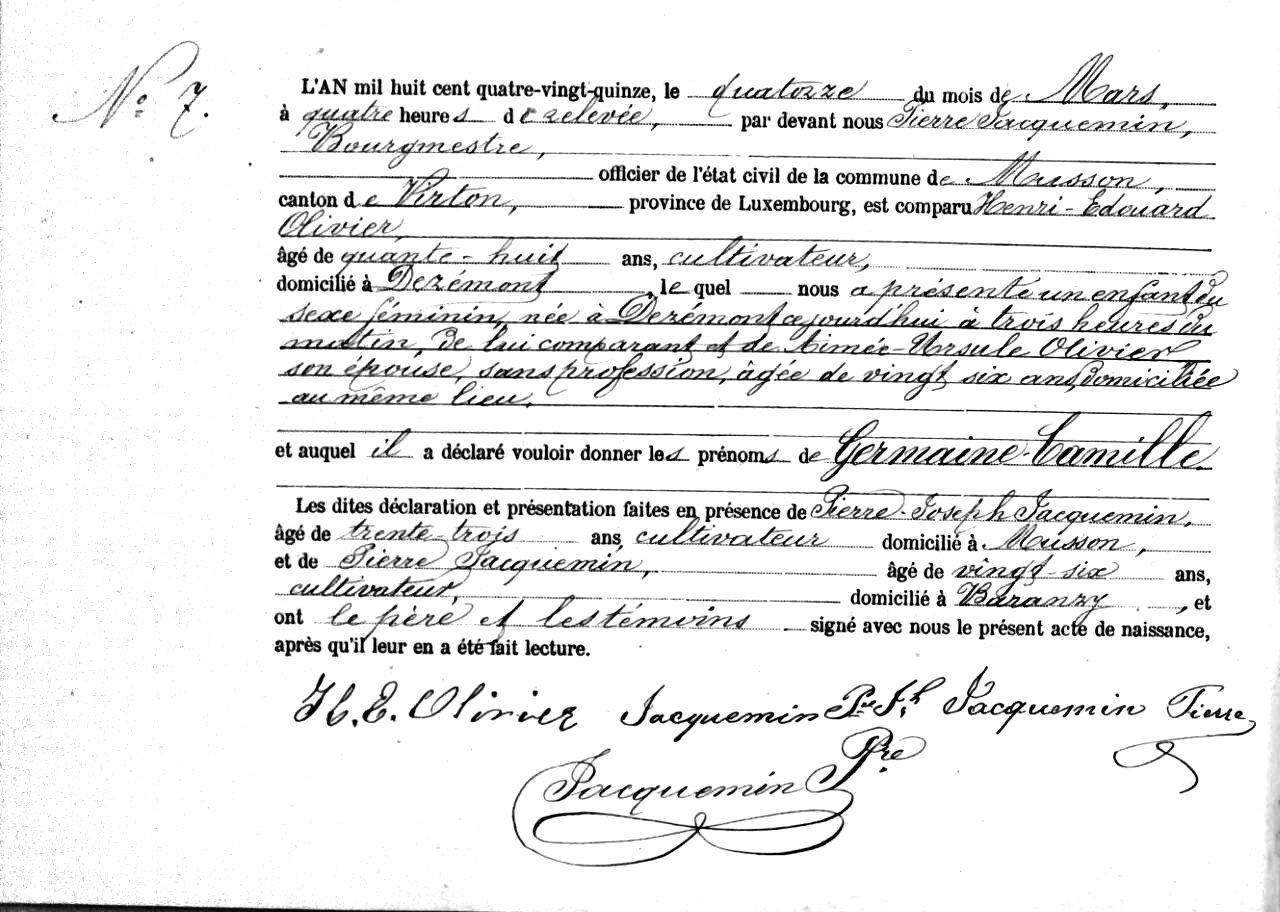 N° 7.
L'AN mil huit cent quatre-vingt-quinze, le quatorze du mois de Mars,
à quatre heures de relevée, par devant nous Pierre Jacquemin,
Bourgmestre,
officier de l'état civil de la commune de Musson,
canton de Virton, province de Luxembourg, est comparu Henri-Edouard
Olivier,
âgé de quante-huit ans, cultivateur,
domicilié à Dezémont, le quel nous a présenté un enfant du
sexe féminin, née à Dezémont cejourd'hui à trois heures du
matin, de lui comparant et de Aimée-Ursule Olivier
son épouse, sans profession, âgée de vingt six ans, domiciliée
au même lieu.
et auquel il a déclaré vouloir donner les prénoms de Germaine-Camille.
Les dites déclaration et présentation faites en présence de Pierre-Joseph Jacquemin,
âgé de trente-trois ans, cultivateur domicilié à Musson,
et de Pierre Jacquemin, âgé de vingt-six ans,
cultivateur, domicilié à Baranzy, et
ont le père et les témoins signé avec nous le présent acte de naissance,
après qu'il leur en a été fait lecture.
H. E. Olivier Jacquemin Pre Jh Jacquemin Pierre
Jacquemin Pre